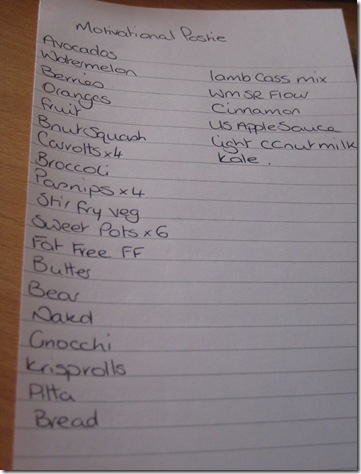 Motivational Postie
Avocados
Watermelon
Berries
Oranges
Fruit
Bnut Squash
Carrots x4
Broccoli
Parsnips x4
Stir fry veg
Sweet Pots x6
Fat Free FF
Butter
Bear
Naked
Gnocchi
Krisprolls
Pitta
Bread
lamb Cass mix
WM SR Flow
Cinnamon
US Apple Sauce
light CCnut milk
kale.